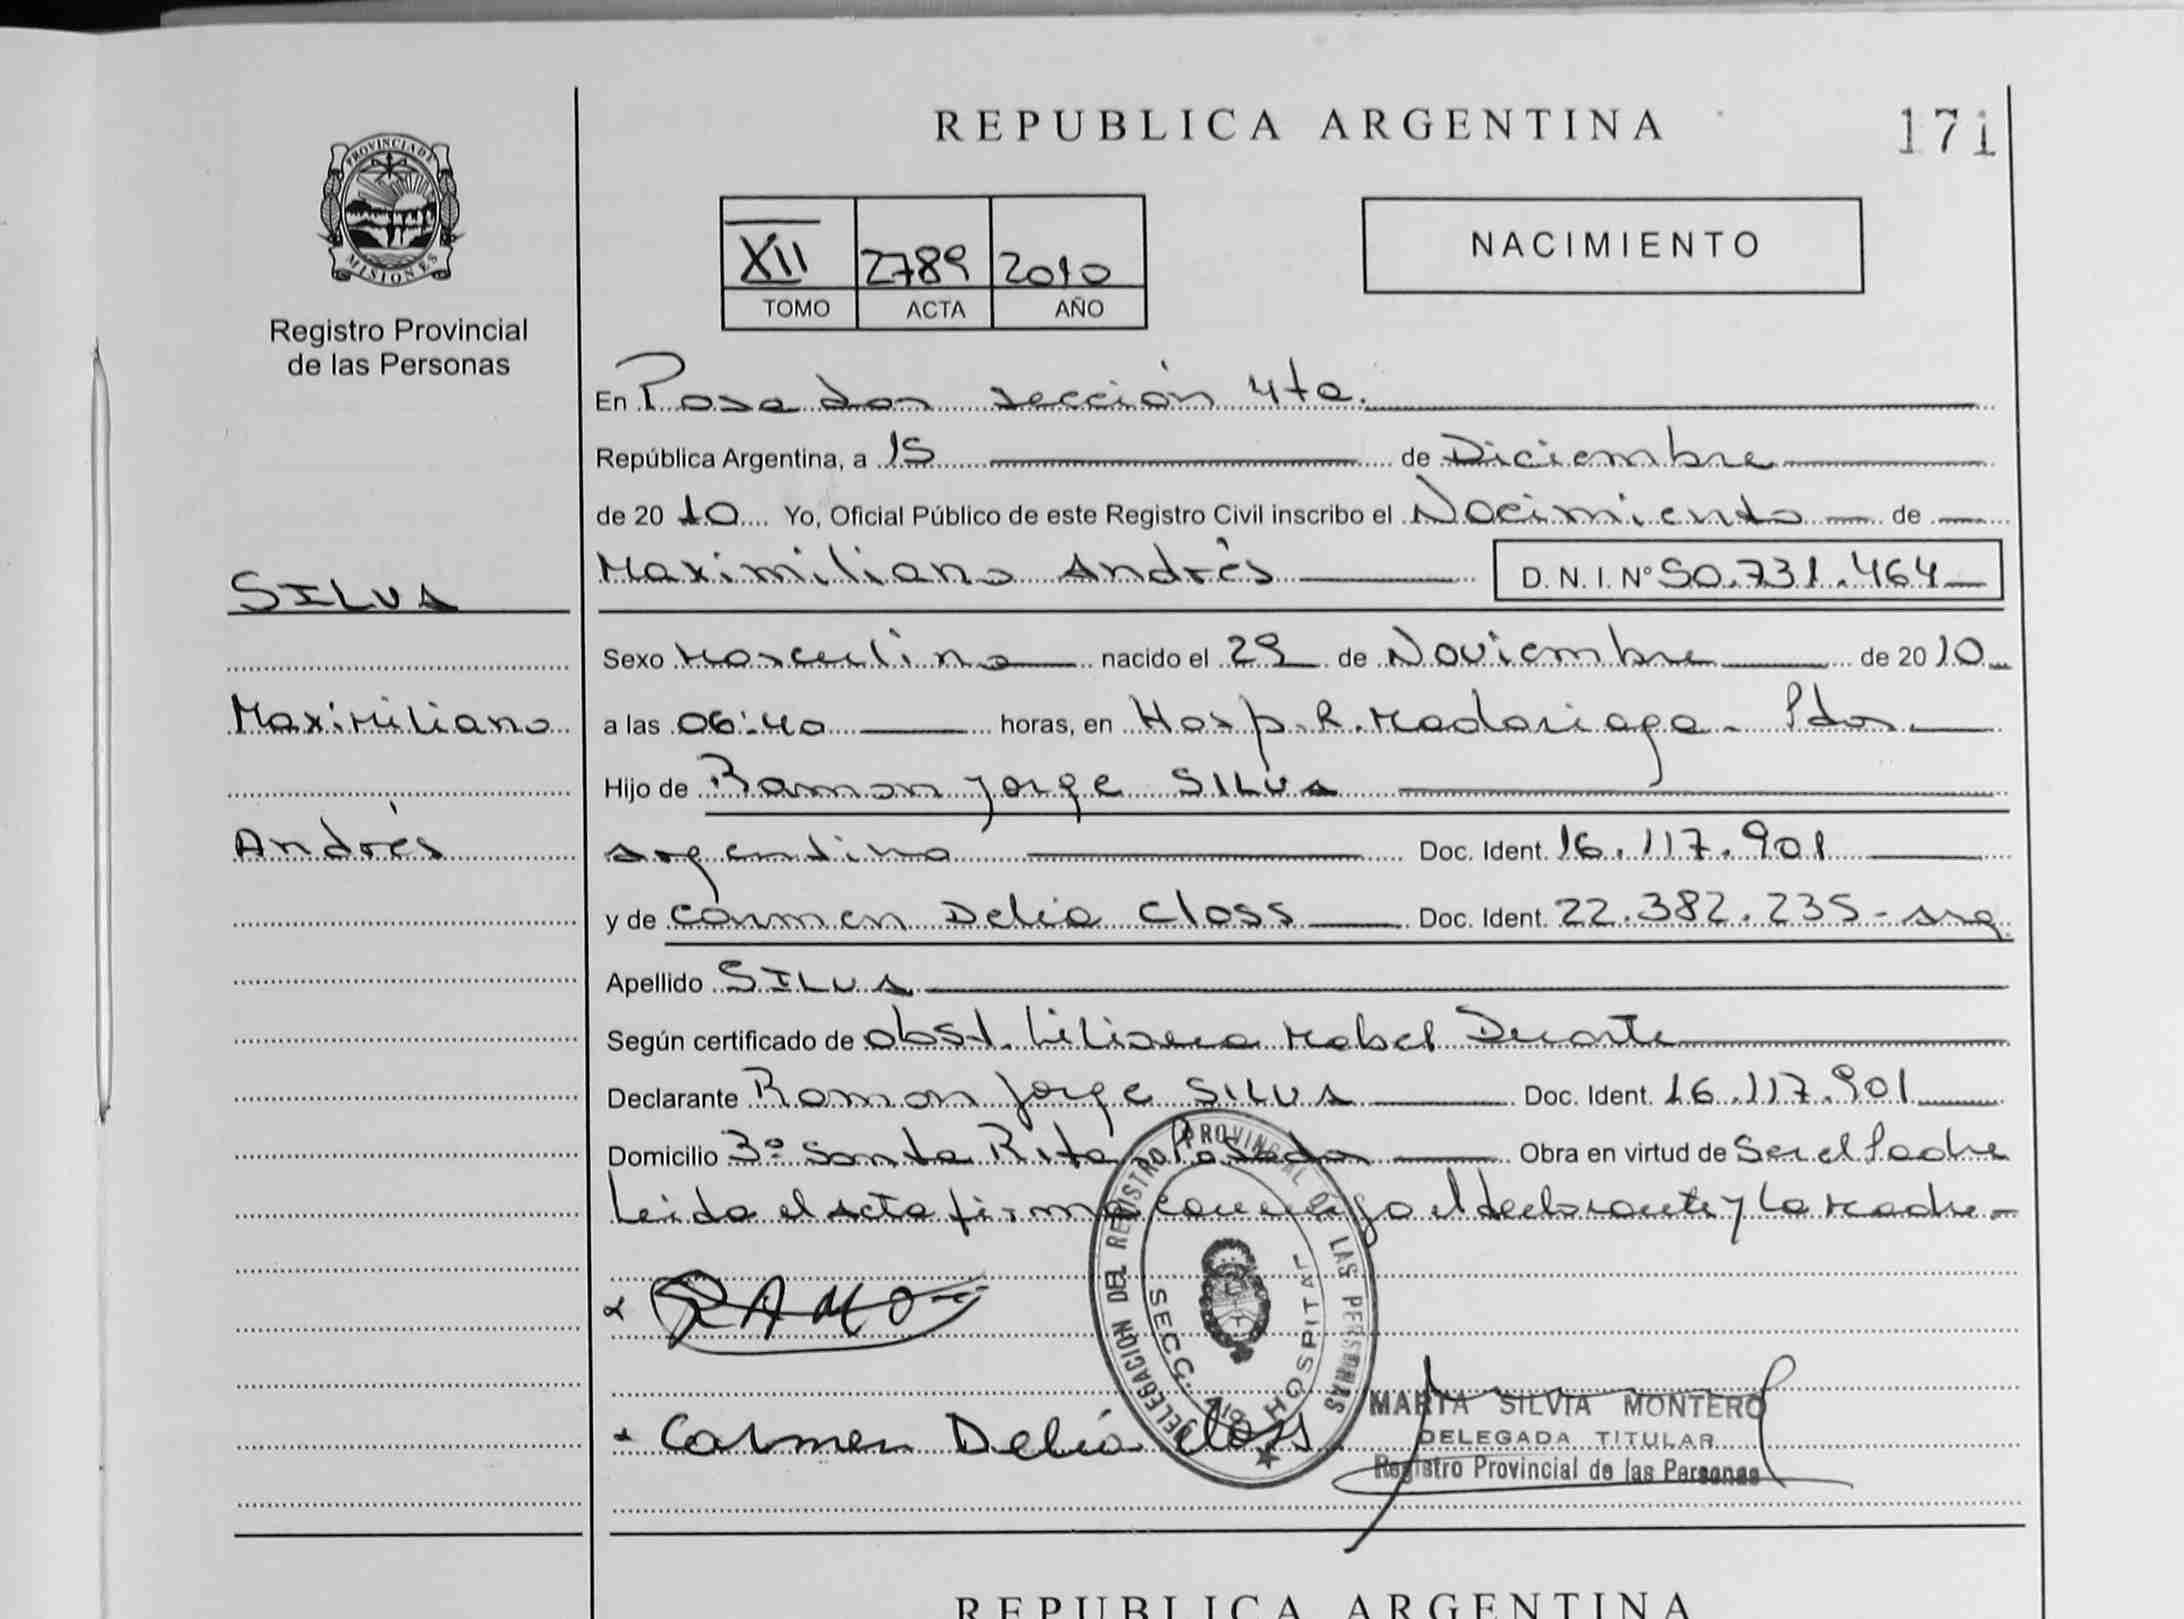 REPUBLICA ARGENTINA
171
PROVINCIA DE
MISIONES
Registro Provincial
de las Personas
XII 2789 2010
TOMO ACTA AÑO
NACIMIENTO
En Posadas sección 4ta.
República Argentina, a 15 de Diciembre
de 2010 Yo, Oficial Público de este Registro Civil inscribo el Nacimiento de
Maximiliano Andrés D. N. I. Nº 50.731.464
SILVA
Maximiliano
Andrés
Sexo Masculino nacido el 29 de Noviembre de 2010
a las 06:40 horas, en Hosp. R. Madariaga - Pdas
Hijo de Ramon Jorge SILVA
Argentino Doc. Ident. 16.117.901
y de Carmen Delia Closs Doc. Ident. 22.382.235 - Arg.
Apellido SILVA
Según certificado de obst. Liliana Mabel Duarte
Declarante Ramon Jorge SILVA Doc. Ident. 16.117.901
Domicilio 3º Santa Rita Posadas Obra en virtud de Ser el Padre
Leida el Acta firma conmigo el declarante y la Madre -
RAMO
Carmen Delia Closs
DELEGACION DEL REGISTRO PROVINCIAL DE LAS PERSONAS
SECC. HOSPITAL
MARTA SILVIA MONTERO
DELEGADA TITULAR
Registro Provincial de las Personas
REPUBLICA ARGENTINA